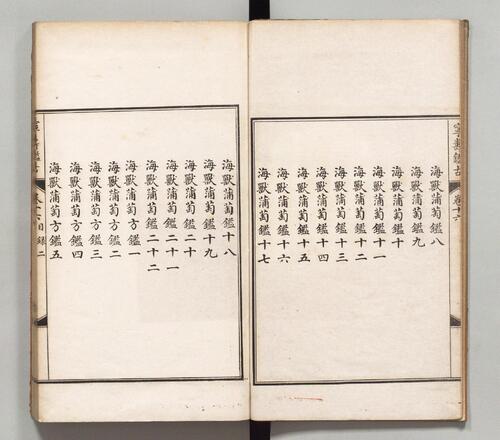 寧壽鑑古 卷十六
海獸蒲萄鑑八
海獸蒲萄鑑九
海獸蒲萄鑑十
海獸蒲萄鑑十一
海獸蒲萄鑑十二
海獸蒲萄鑑十三
海獸蒲萄鑑十四
海獸蒲萄鑑十五
海獸蒲萄鑑十六
海獸蒲萄鑑十七
海獸蒲萄鑑十八
海獸蒲萄鑑十九
海獸蒲萄鑑二十
海獸蒲萄鑑二十一
海獸蒲萄鑑二十二
海獸蒲萄方鑑一
海獸蒲萄方鑑二
海獸蒲萄方鑑三
海獸蒲萄方鑑四
海獸蒲萄方鑑五
寧壽鑑古 卷十六目錄 二